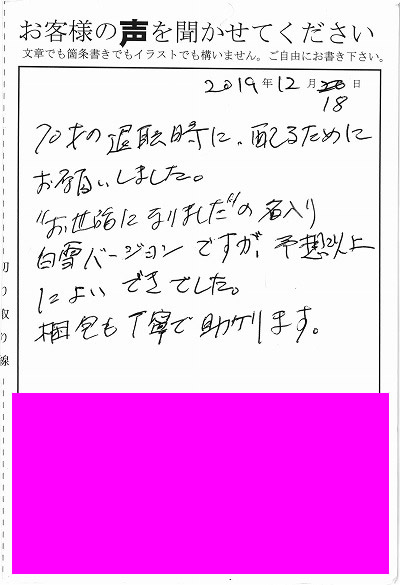 お客様の声を聞かせてください
文章でも箇条書きでもイラストでも構いません。ご自由にお書き下さい。
2019年12月18日
70才の退職時に、配るために
お願いしました。
"お世話になりました"の名入り
白雪バージョンですが、予想以上
によいできでした。
梱包も丁寧で助かります。
切り取り線